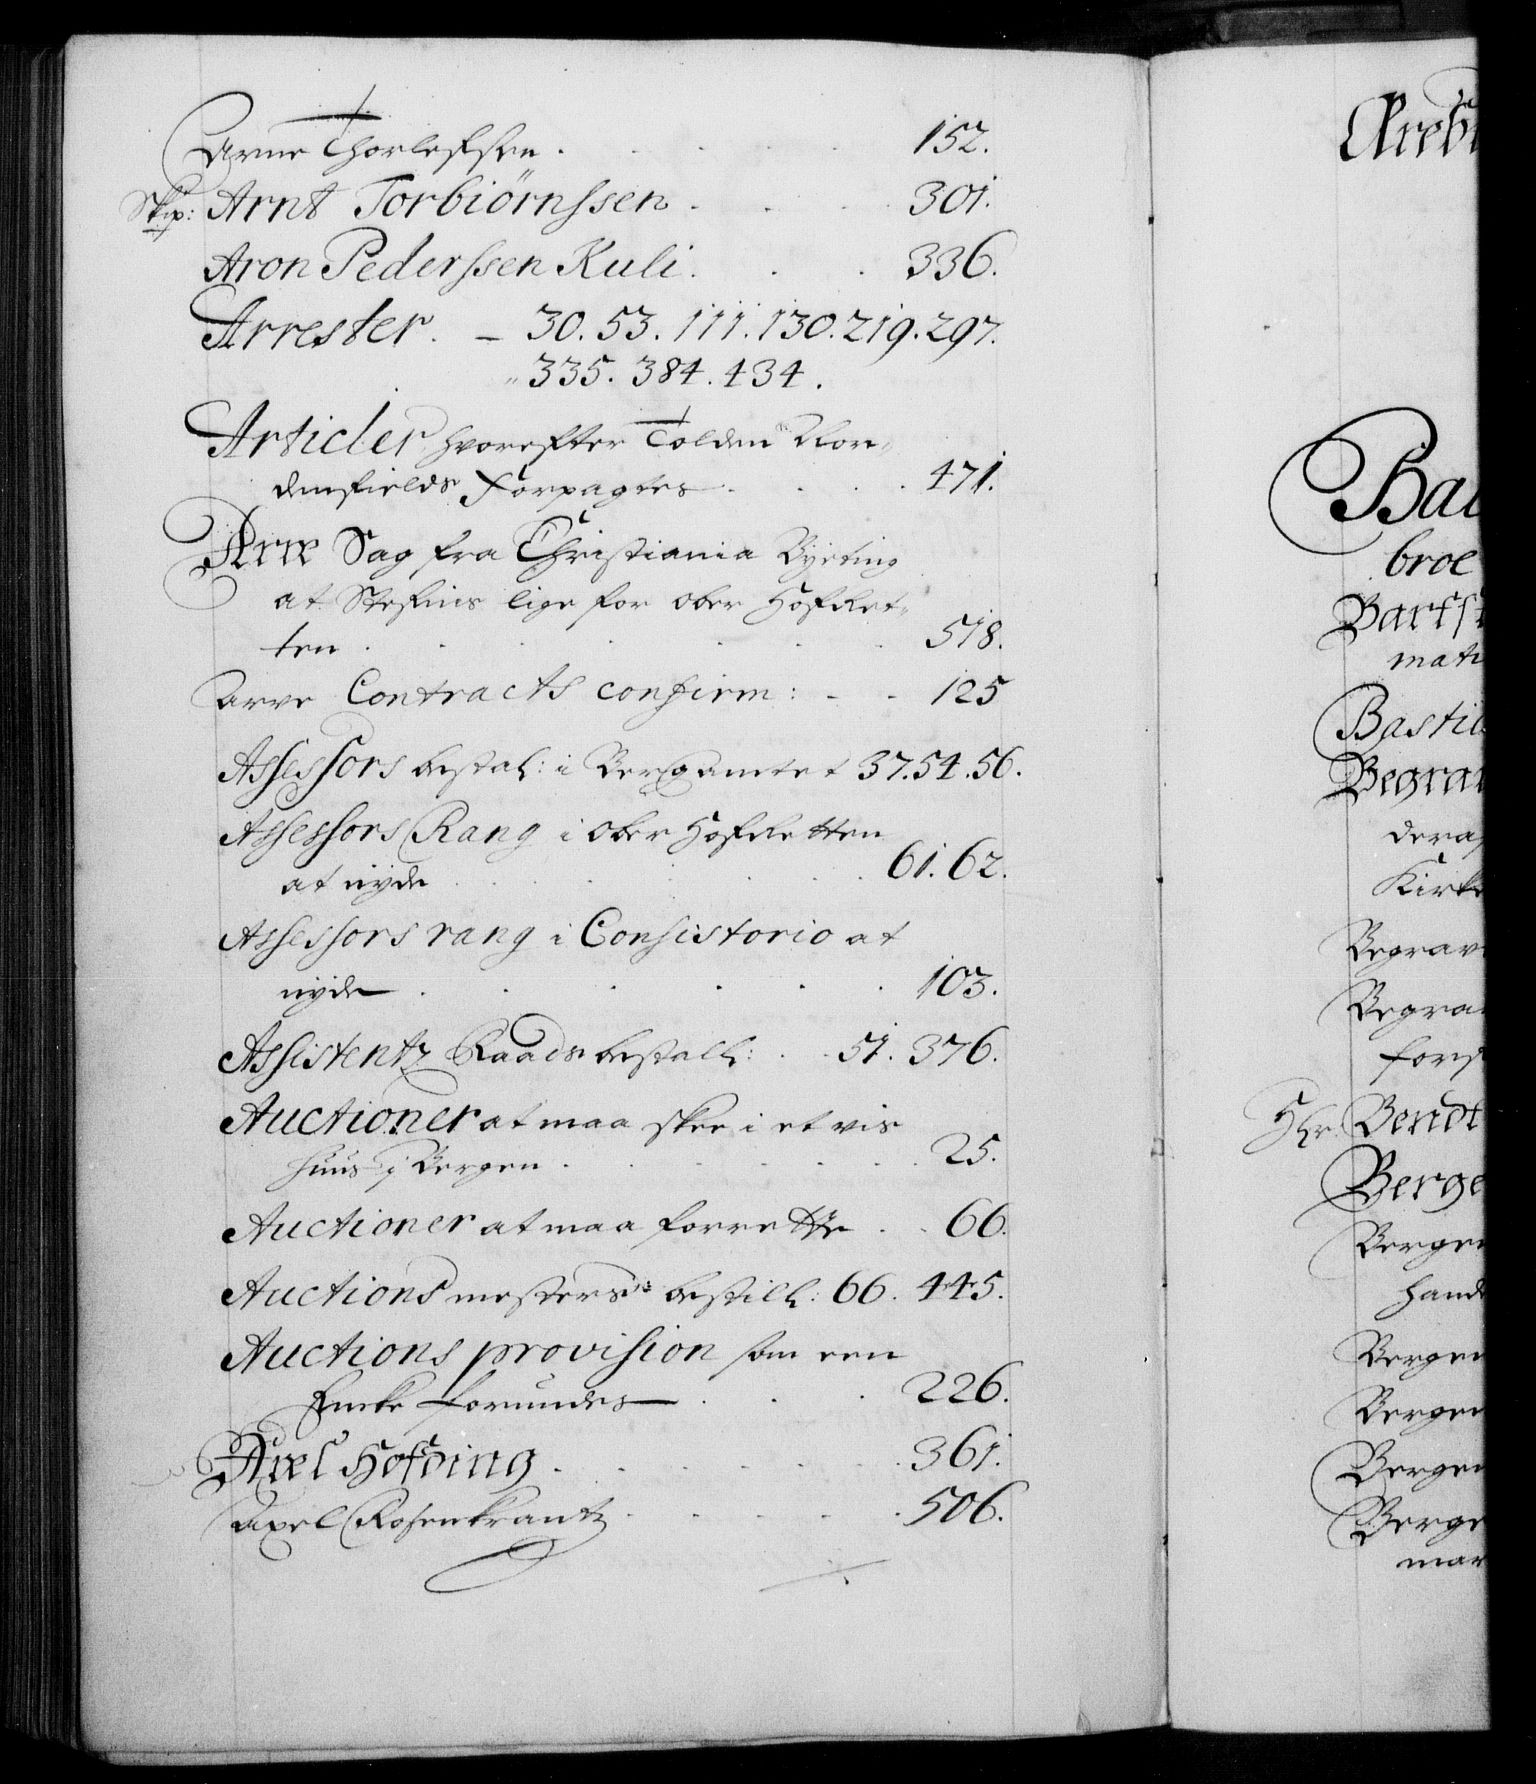 Arne Thorlefssen . . . . . 152.
Skip: Arnt Torbiörnssen . . . 301.
Aron Pederssen Kuli . . . 336.
Arrester. – 30. 53. 111. 130. 219. 297.
335. 384. 434.
Articler hvorefter Tolden Nor-
denfields Forpagtes . . . 471.
Arve Sag fra Christiania Byeting
at Stefnis lige for ober HofRet-
ten . . . . . 518.
Arve Contracts confirm: - - 125
Assessors bestal: i BergAmtet 37. 54. 56.
Assessors Rang i Ober HofRetten
at nyde . . . . . 61. 62.
Assessors rang i Consistorio at
nyde . . . . . 103.
Assistentz Raads bestall: . . 51. 376.
Auctioner at maa skee i et vis
huus i Bergen . . . . . 25.
Auctioner at maa forrette . . 66.
Auctions mesters bestill: 66. 445.
Auctions provision som een
Encke forundes . . . 226.
Axel Hofding . . . . . 361.
Axel Rosenkrantz . . . . . 506.
Bal
broe
Barfst
mati
Bastia
Begrav
deraf
Kirke
Begrav
Begrav
forst
Hr. Bendt
Berge
Bergen
hand
Bergen
Bergen
Bergen
Berge
mar